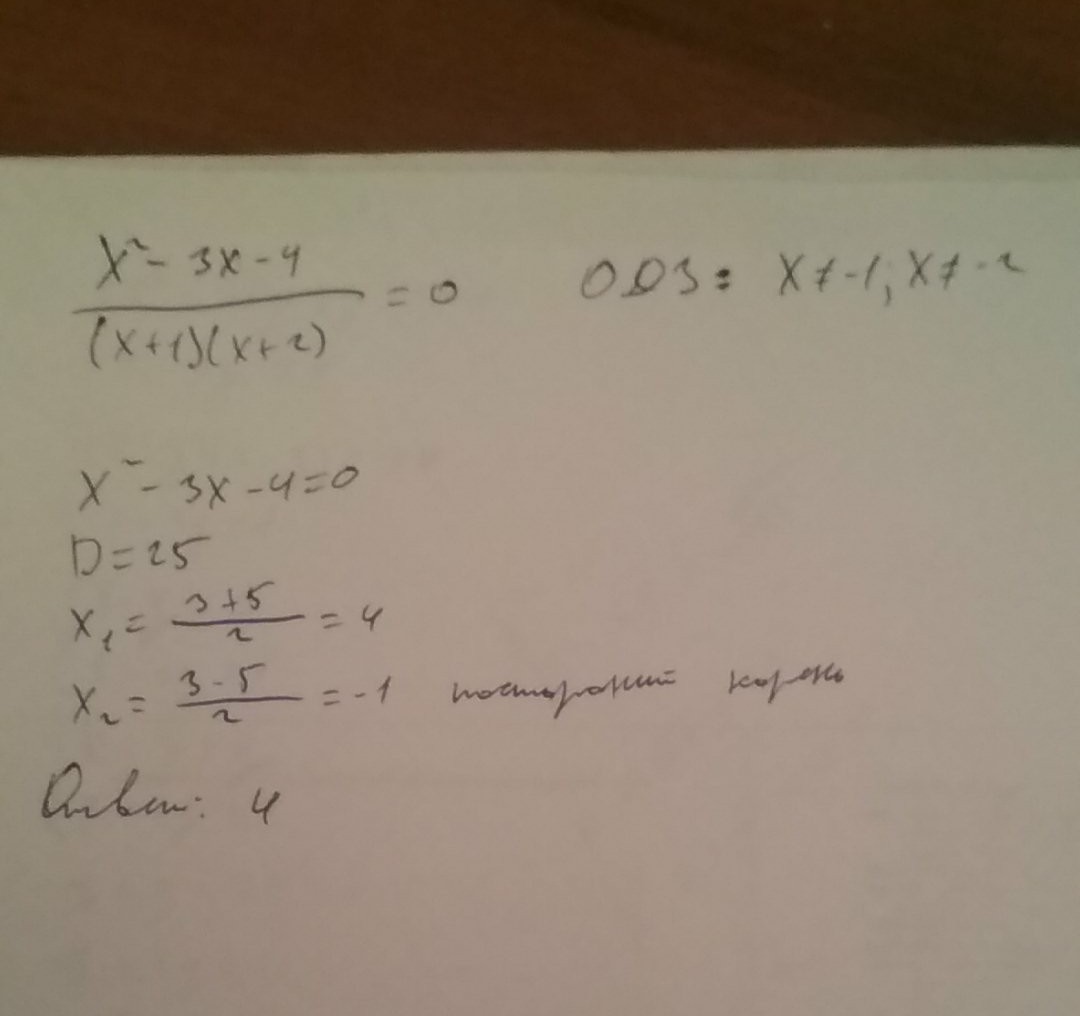 x² - 3x - 4 / (x+1)(x+2) = 0 ОДЗ: x ≠ -1; x ≠ -2
x² - 3x - 4 = 0
D = 25
x₁ = 3+5 / 2 = 4
x₂ = 3-5 / 2 = -1 посторонний корень
Ответ: 4